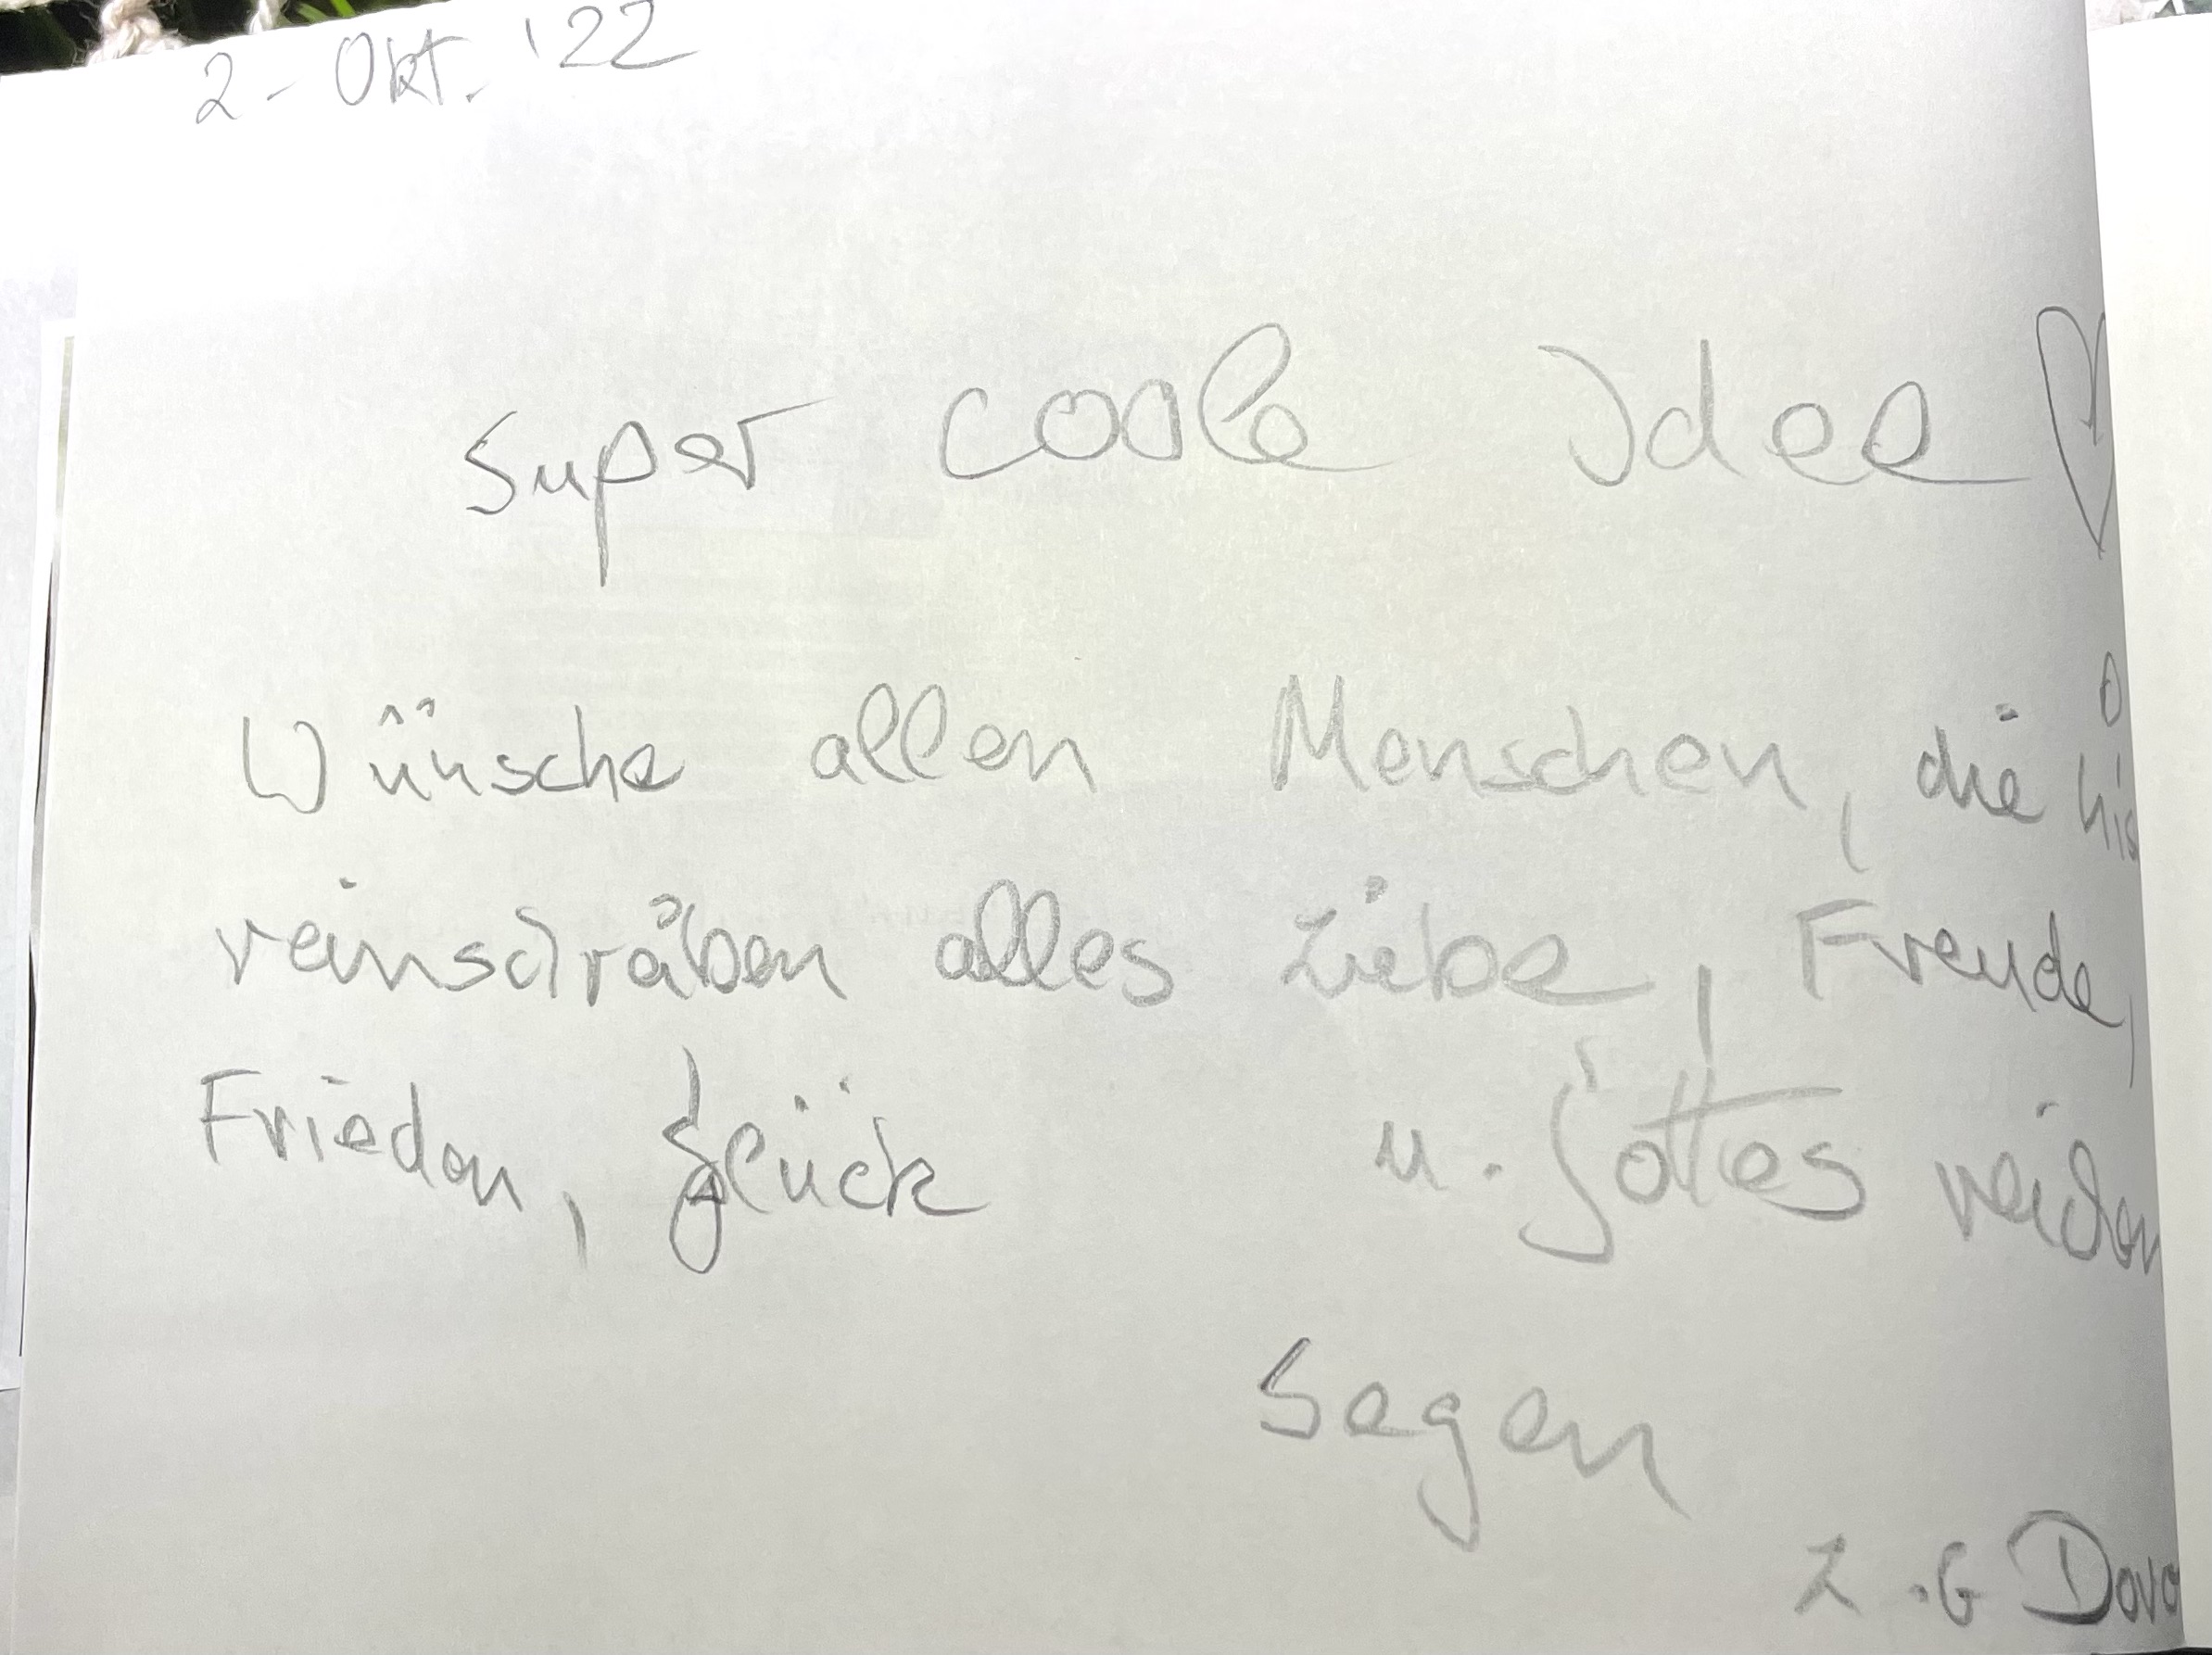 2. Okt. '22
Super coole Idee
Wünsche allen Menschen, die
reinschräben alles Liebe, Freude,
Frieden, Glück u. Gottes reichen
Segen
L.G